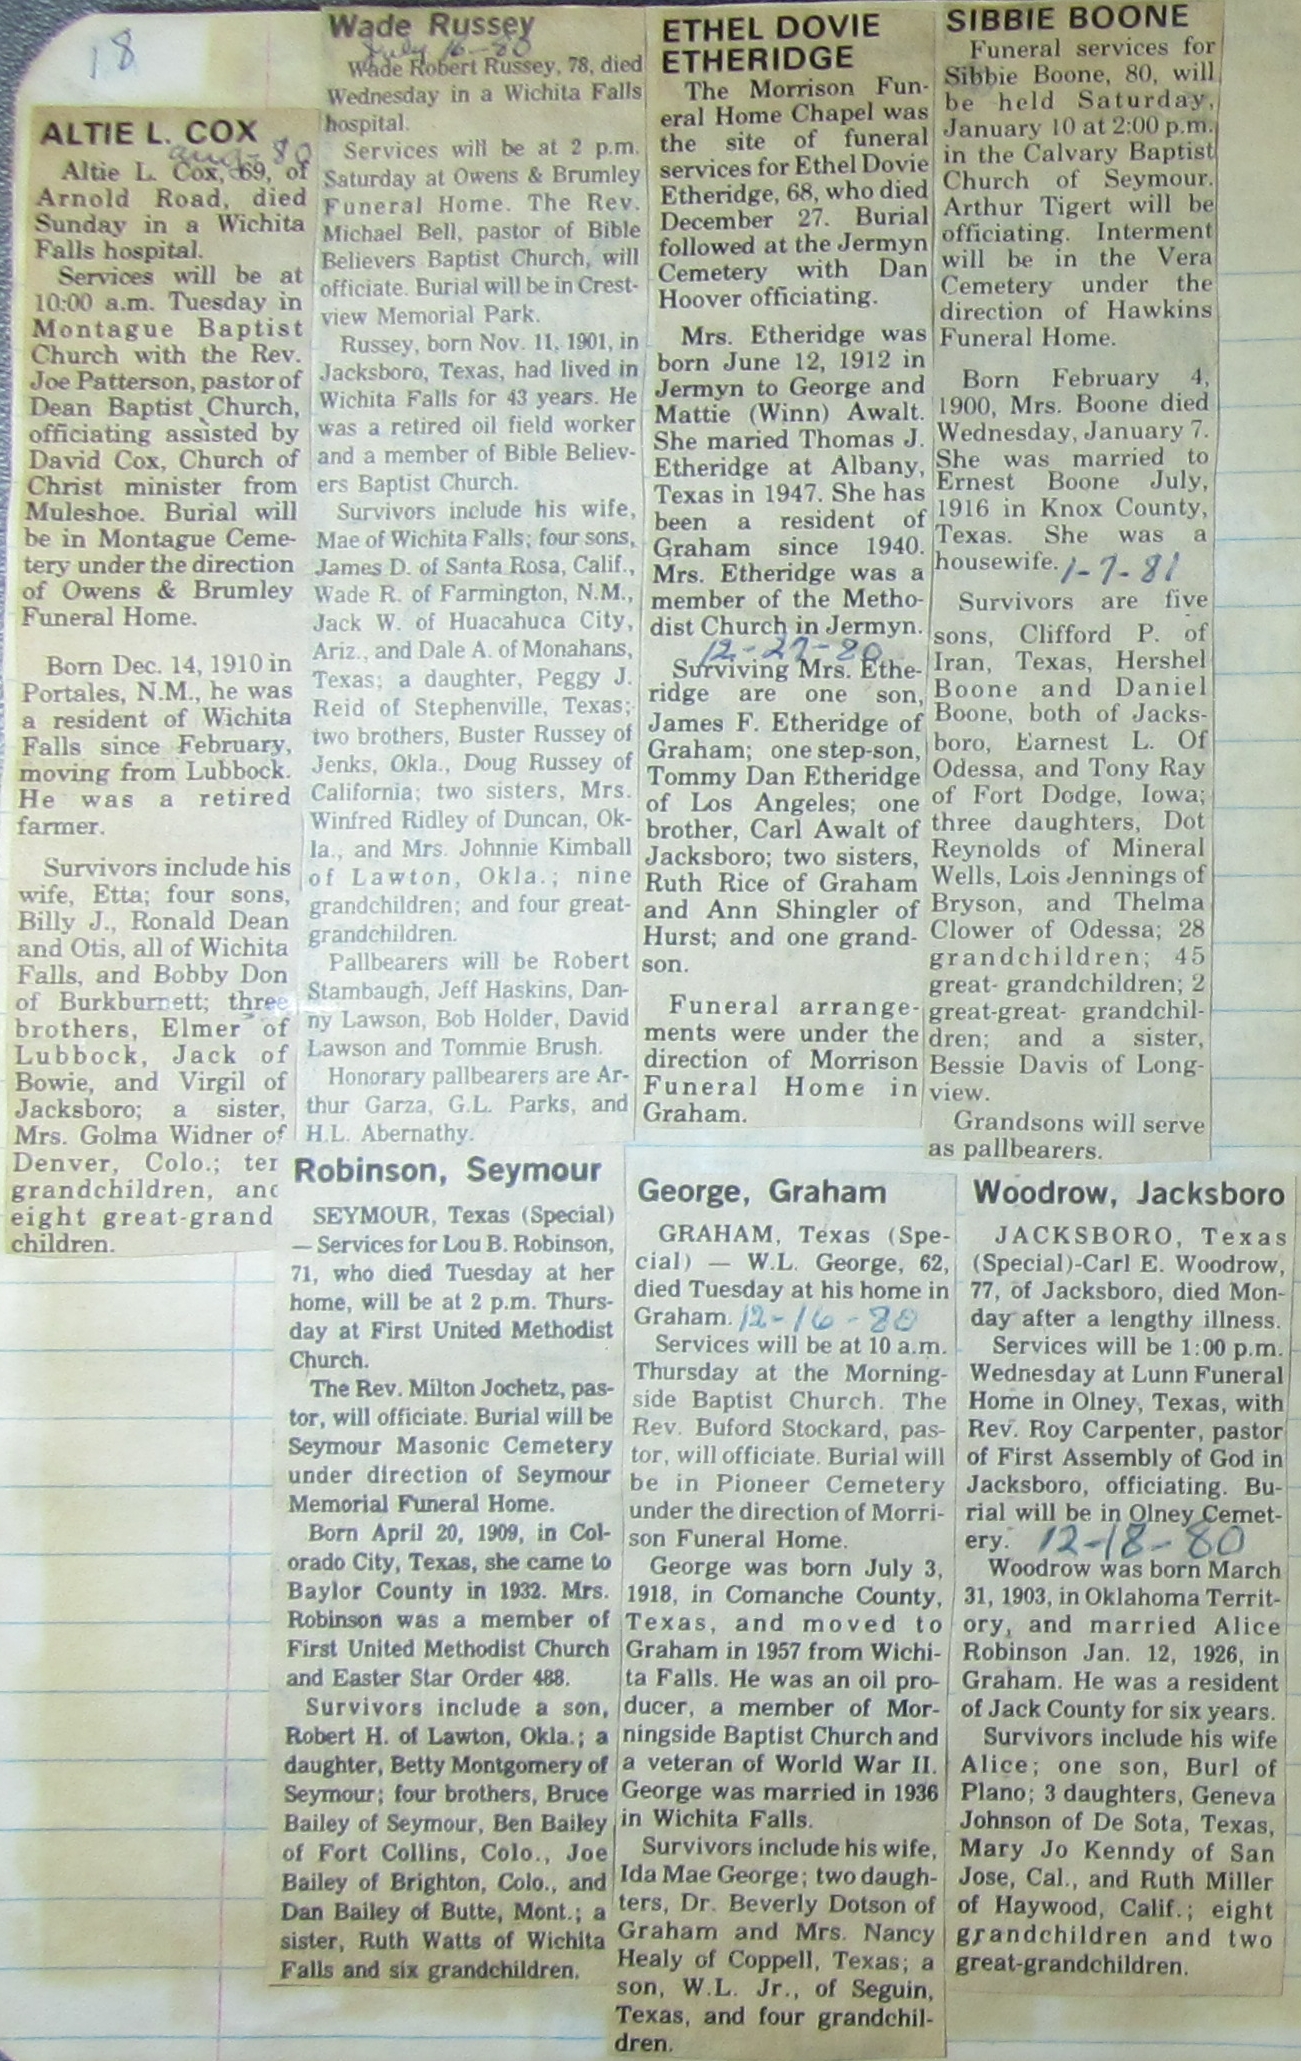 18
ALTIE L. COX
aug - 80
Altie L. Cox, 69, of
Arnold Road, died
Sunday in a Wichita
Falls hospital.
Services will be at
10:00 a.m. Tuesday in
Montague Baptist
Church with the Rev.
Joe Patterson, pastor of
Dean Baptist Church,
officiating assisted by
David Cox, Church of
Christ minister from
Muleshoe. Burial will
be in Montague Ceme-
tery under the direction
of Owens & Brumley
Funeral Home.
Born Dec. 14, 1910 in
Portales, N.M., he was
a resident of Wichita
Falls since February,
moving from Lubbock.
He was a retired
farmer.
Survivors include his
wife, Etta; four sons,
Billy J., Ronald Dean
and Otis, all of Wichita
Falls, and Bobby Don
of Burkburnett; three
brothers, Elmer of
Lubbock, Jack of
Bowie, and Virgil of
Jacksboro; a sister,
Mrs. Golma Widner of
Denver, Colo.; ten
grandchildren, and
eight great-grand
children.
Wade Russey
July 16-80
Wade Robert Russey, 78, died
Wednesday in a Wichita Falls
hospital.
Services will be at 2 p.m.
Saturday at Owens & Brumley
Funeral Home. The Rev.
Michael Bell, pastor of Bible
Believers Baptist Church, will
officiate. Burial will be in Crest-
view Memorial Park.
Russey, born Nov. 11, 1901, in
Jacksboro, Texas, had lived in
Wichita Falls for 43 years. He
was a retired oil field worker
and a member of Bible Believ-
ers Baptist Church.
Survivors include his wife,
Mae of Wichita Falls; four sons,
James D. of Santa Rosa, Calif.,
Wade R. of Farmington, N.M.,
Jack W. of Huacahuca City,
Ariz., and Dale A. of Monahans,
Texas; a daughter, Peggy J.
Reid of Stephenville, Texas;
two brothers, Buster Russey of
Jenks, Okla., Doug Russey of
California; two sisters, Mrs.
Winfred Ridley of Duncan, Ok-
la., and Mrs. Johnnie Kimball
of Lawton, Okla.; nine
grandchildren; and four great-
grandchildren.
Pallbearers will be Robert
Stambaugh, Jeff Haskins, Dan-
ny Lawson, Bob Holder, David
Lawson and Tommie Brush.
Honorary pallbearers are Ar-
thur Garza, G.L. Parks, and
H.L. Abernathy.
ETHEL DOVIE
ETHERIDGE
The Morrison Fun-
eral Home Chapel was
the site of funeral
services for Ethel Dovie
Etheridge, 68, who died
December 27. Burial
followed at the Jermyn
Cemetery with Dan
Hoover officiating.
Mrs. Etheridge was
born June 12, 1912 in
Jermyn to George and
Mattie (Winn) Awalt.
She maried Thomas J.
Etheridge at Albany,
Texas in 1947. She has
been a resident of
Graham since 1940.
Mrs. Etheridge was a
member of the Metho-
dist Church in Jermyn.
12-27-80
Surviving Mrs. Ethe-
ridge are one son,
James F. Etheridge of
Graham; one step-son,
Tommy Dan Etheridge
of Los Angeles; one
brother, Carl Awalt of
Jacksboro; two sisters,
Ruth Rice of Graham
and Ann Shingler of
Hurst; and one grand-
son.
Funeral arrange-
ments were under the
direction of Morrison
Funeral Home in
Graham.
SIBBIE BOONE
Funeral services for
Sibbie Boone, 80, will
be held Saturday,
January 10 at 2:00 p.m.
in the Calvary Baptist
Church of Seymour.
Arthur Tigert will be
officiating. Interment
will be in the Vera
Cemetery under the
direction of Hawkins
Funeral Home.
Born February 4,
1900, Mrs. Boone died
Wednesday, January 7.
She was married to
Ernest Boone July,
1916 in Knox County,
Texas. She was a
housewife. 1-7-81
Survivors are five
sons, Clifford P. of
Iran, Texas, Hershel
Boone and Daniel
Boone, both of Jacks-
boro, Earnest L. Of
Odessa, and Tony Ray
of Fort Dodge, Iowa;
three daughters, Dot
Reynolds of Mineral
Wells, Lois Jennings of
Bryson, and Thelma
Clower of Odessa; 28
grandchildren; 45
great- grandchildren; 2
great-great- grandchil-
dren; and a sister,
Bessie Davis of Long-
view.
Grandsons will serve
as pallbearers.
Robinson, Seymour
SEYMOUR, Texas (Special)
— Services for Lou B. Robinson,
71, who died Tuesday at her
home, will be at 2 p.m. Thurs-
day at First United Methodist
Church.
The Rev. Milton Jochetz, pas-
tor, will officiate. Burial will be
Seymour Masonic Cemetery
under direction of Seymour
Memorial Funeral Home.
Born April 20, 1909, in Col-
orado City, Texas, she came to
Baylor County in 1932. Mrs.
Robinson was a member of
First United Methodist Church
and Easter Star Order 488.
Survivors include a son,
Robert H. of Lawton, Okla.; a
daughter, Betty Montgomery of
Seymour; four brothers, Bruce
Bailey of Seymour, Ben Bailey
of Fort Collins, Colo., Joe
Bailey of Brighton, Colo., and
Dan Bailey of Butte, Mont.; a
sister, Ruth Watts of Wichita
Falls and six grandchildren.
George, Graham
GRAHAM, Texas (Spe-
cial) — W.L. George, 62,
died Tuesday at his home in
Graham. 12-16-80
Services will be at 10 a.m.
Thursday at the Morning-
side Baptist Church. The
Rev. Buford Stockard, pas-
tor, will officiate. Burial will
be in Pioneer Cemetery
under the direction of Morri-
son Funeral Home.
George was born July 3,
1918, in Comanche County,
Texas, and moved to
Graham in 1957 from Wichi-
ta Falls. He was an oil pro-
ducer, a member of Mor-
ningside Baptist Church and
a veteran of World War II.
George was married in 1936
in Wichita Falls.
Survivors include his wife,
Ida Mae George; two daugh-
ters, Dr. Beverly Dotson of
Graham and Mrs. Nancy
Healy of Coppell, Texas; a
son, W.L. Jr., of Seguin,
Texas, and four grandchil-
dren.
Woodrow, Jacksboro
JACKSBORO, Texas
(Special)-Carl E. Woodrow,
77, of Jacksboro, died Mon-
day after a lengthy illness.
Services will be 1:00 p.m.
Wednesday at Lunn Funeral
Home in Olney, Texas, with
Rev. Roy Carpenter, pastor
of First Assembly of God in
Jacksboro, officiating. Bu-
rial will be in Olney Cemet-
ery. 12-18-80
Woodrow was born March
31, 1903, in Oklahoma Territ-
ory, and married Alice
Robinson Jan. 12, 1926, in
Graham. He was a resident
of Jack County for six years.
Survivors include his wife
Alice; one son, Burl of
Plano; 3 daughters, Geneva
Johnson of De Sota, Texas,
Mary Jo Kenndy of San
Jose, Cal., and Ruth Miller
of Haywood, Calif.; eight
grandchildren and two
great-grandchildren.